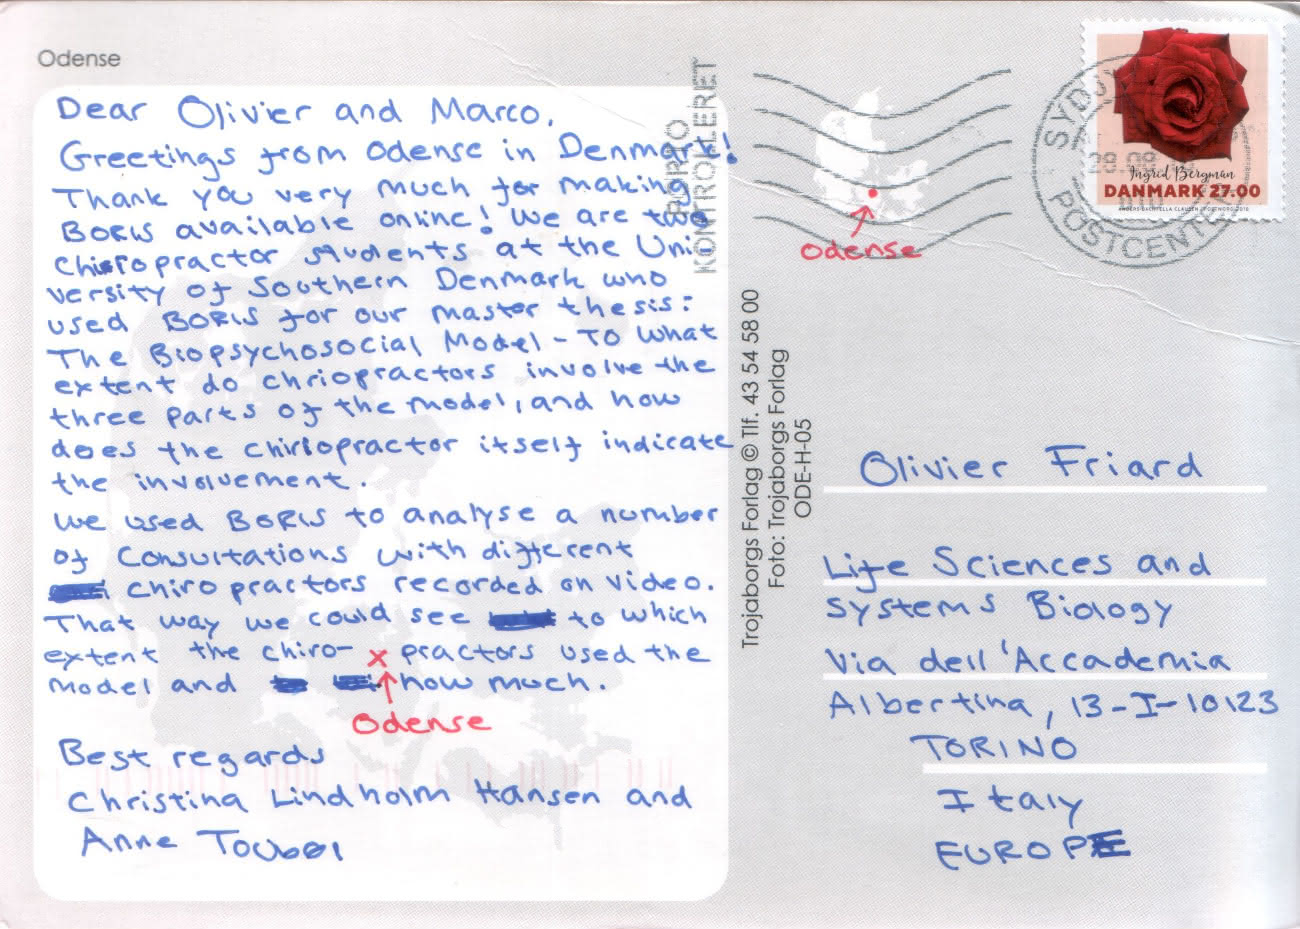 Odense
Dear Olivier and Marco.
Greetings from Odense in Denmark!
Thank you very much for making
BORIS available online! We are two
chiropractor students at the Uni-
versity of Southern Denmark who
used BORIS for our master thesis:
The Biopsychosocial Model - To what
extent do chriopractors involve the
three parts of the model, and how
does the chiriopractor itself indicate
the involvement.
We used BORIS to analyse a number
of consultations with different
chiropractors recorded on video.
That way we could see to which
extent the chiro- x practors used the
model and how much.
Odense
Best regards
Christina Lindholm Hansen and
Anne
PORTO
KONTROLLERET
Odense
SYDJY
28.08
POSTCENTER
Ingrid Bergman
DANMARK 27.00
Trojaborgs Forlag © Tlf. 43 54 58 00
Foto: Trojaborgs Forlag
ODE-H-05
Olivier Friard
Life Sciences and
Systems Biology
Via dell'Accademia
Albertina, 13-I-10123
TORINO
Italy
EUROPE